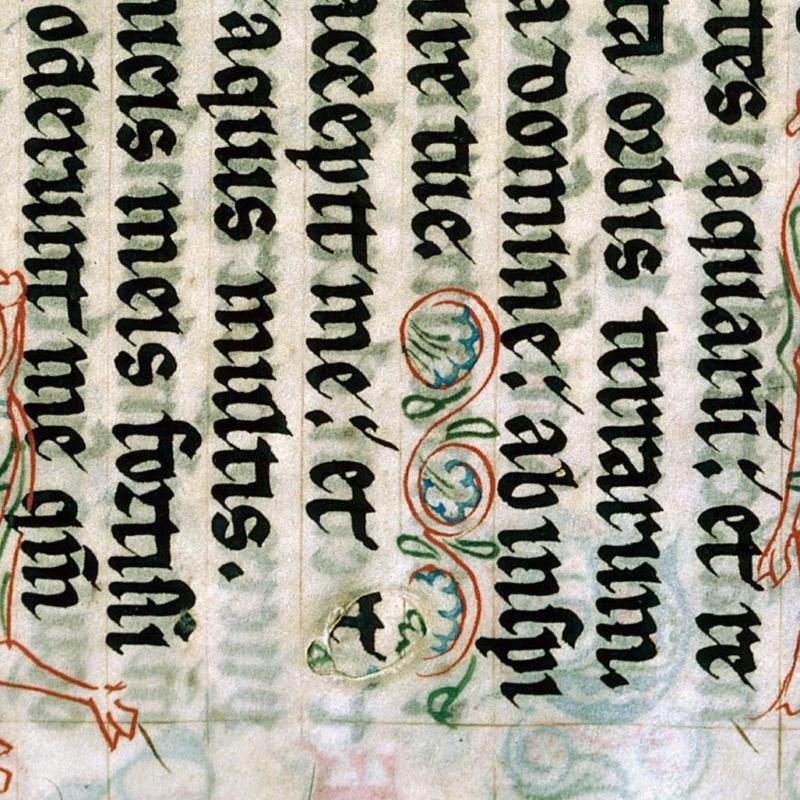 tes aquarū: et re
ta orbis terrarum.
a domine: ab inspi
ire tue.
accepit me: et
aquis multis.
micis meis fortissi
oderunt me qm̄